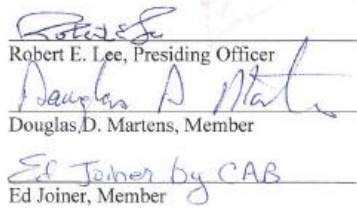 Robert E. Lee
Robert E. Lee, Presiding Officer
Douglas D. Martens
Douglas D. Martens, Member
Ed Joiner by CAB
Ed Joiner, Member